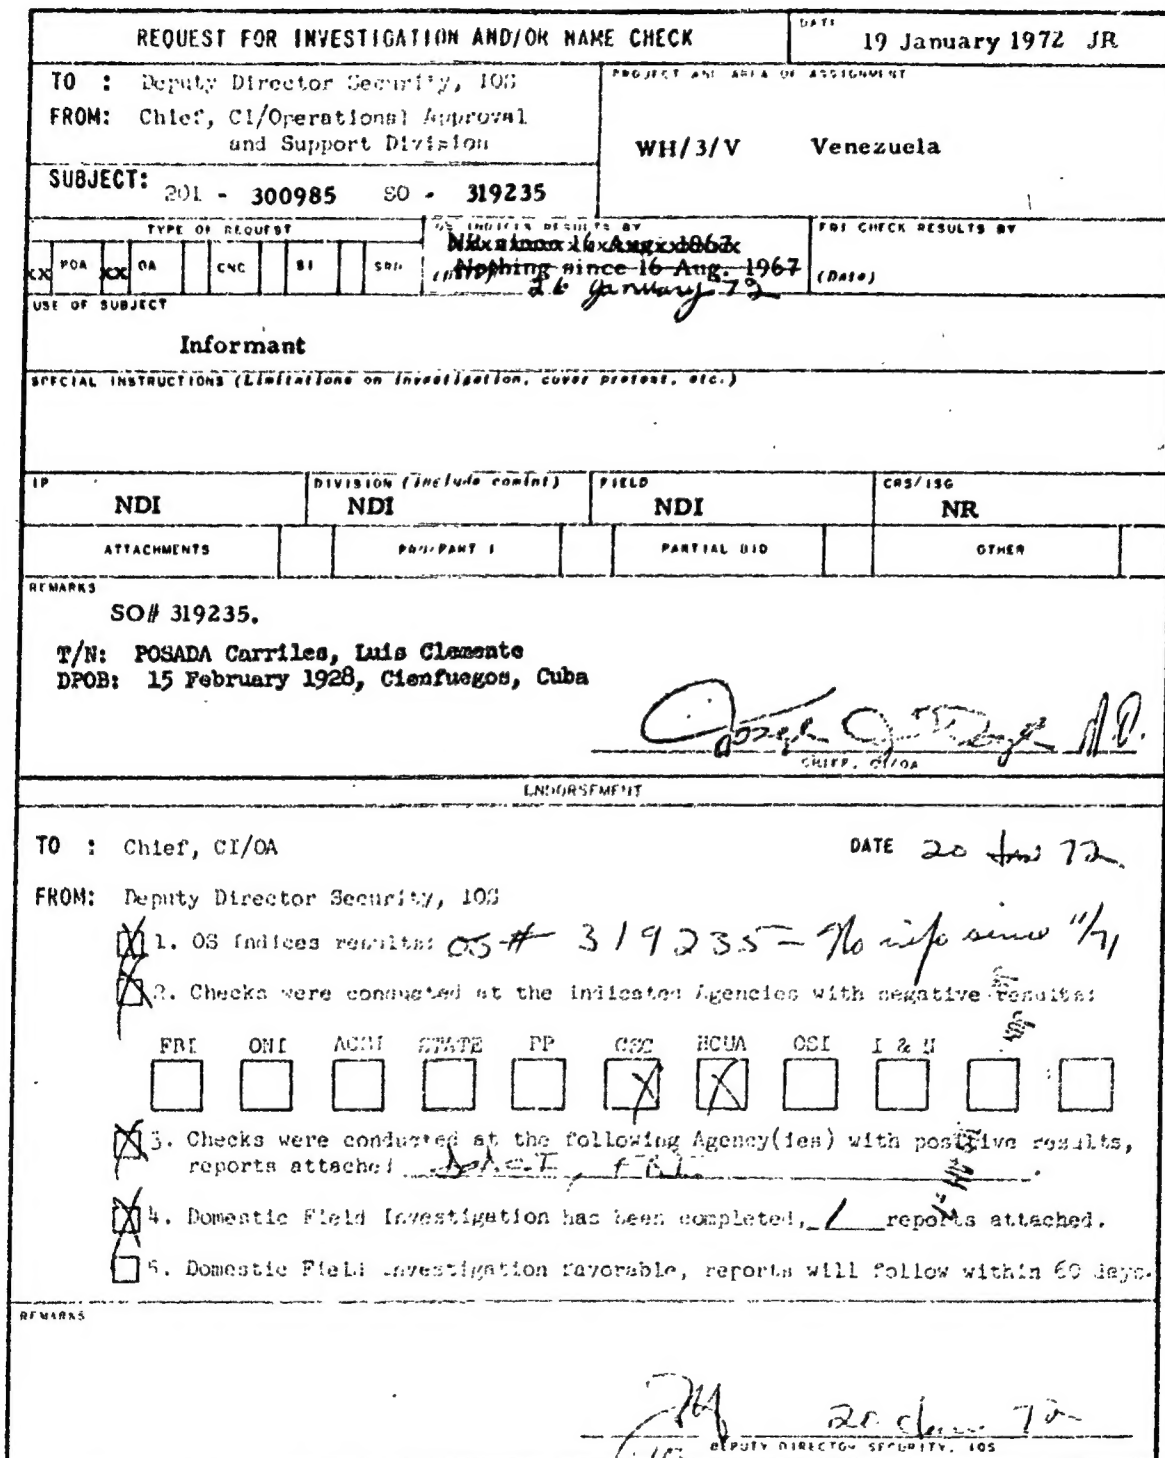 REQUEST FOR INVESTIGATION AND/OR NAME CHECK
DATE
19 January 1972 JR
TO : Deputy Director Security, IOS
FROM: Chief, CI/Operational Approval
and Support Division
PROJECT AND AREA OF ASSIGNMENT
WH/3/V Venezuela
SUBJECT: 201 - 300985 SO - 319235
TYPE OF REQUEST
xx POA xx OA CNC SI SRD
OS INDICES RESULTS BY
NR since 16 Aug. 1967
Nothing since 16 Aug. 1967
26 January 72
FBI CHECK RESULTS BY
(Date)
USE OF SUBJECT
Informant
SPECIAL INSTRUCTIONS (Limitations on investigation, cover pretext, etc.)
IP
NDI
DIVISION (include comint)
NDI
FIELD
NDI
CRS/ISG
NR
ATTACHMENTS
PRQ/PART I
PARTIAL BIO
OTHER
REMARKS
SO# 319235.
T/N: POSADA Carriles, Luis Clemente
DPOB: 15 February 1928, Cienfuegos, Cuba
CHIEF, CI/OA
ENDORSEMENT
TO : Chief, CI/OA
DATE 20 Jan 72
FROM: Deputy Director Security, IOS
1. OS Indices results: OS # 319235 - No info since 11/71
2. Checks were conducted at the indicated Agencies with negative results:
FBI ONI ACSI STATE PP CSC HCUA OSI I & N
3. Checks were conducted at the following Agency(ies) with positive results,
reports attached FBI
4. Domestic Field Investigation has been completed, 1 reports attached.
5. Domestic Field Investigation favorable, reports will follow within 60 days.
REMARKS
20 Jan 72
DEPUTY DIRECTOR SECURITY, IOS